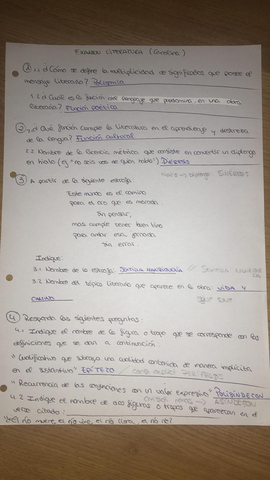 EXAMEN LITERATURA (Carolina)
① 1.1 ¿Cómo se define la multiplicidad de significados que posee el
mensaje literario? Polisemia
1.2 ¿Cuál es la función del lenguaje que predomina en una obra
literaria? Función poética
② 2.1 ¿Qué función cumple la literatura en el aprendizaje y
de la lengua? Función cultural
2.2 Nombre de la licencia métrica que consiste en convertir un diptongo
en hiato (ej "no sois vos de quien hablo") Diéresis
③ A partir de la siguiente estrofa:
Este mundo es el camino
para el otro que es morada
sin pesar,
mas cumple tener buen tino
para andar esta jornada
sin errar.
Indique:
3.1 Nombre de la estrofa: SEXTILLA MANRIQUEÑA
3.2 Nombre del tópico literario que aparece en la obra: VIDA Y
CAMINO
④ Responda las siguientes preguntas:
4.1 Indique el nombre de la figura o tropo que se corresponde con las
definiciones que se dan a continuación.
"Calificativo que subraya una cualidad contenida de manera implícita
en el sustantivo" EPÍTETO
"Recurrencia de las conjunciones con un valor expresivo" POLISÍNDETON
4.2 Indique el nombre de dos figuras o tropos que aparecen en el
verso citado: